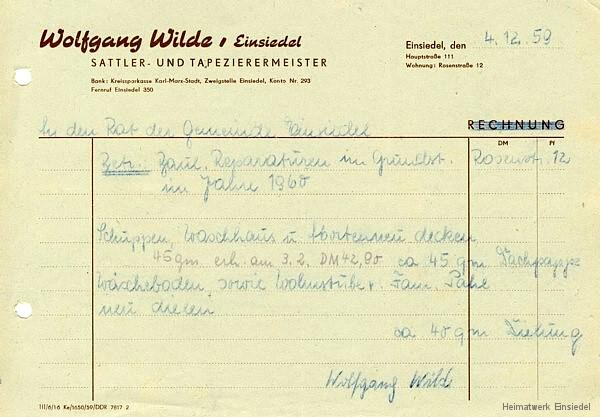 Wolfgang Wilde, Einsiedel
SATTLER- UND TAPEZIERERMEISTER
Bank: Kreissparkasse Karl-Marx-Stadt, Zweigstelle Einsiedel, Konto Nr. 293
Fernruf Einsiedel 350
Einsiedel, den 4.12.59
Hauptstraße 111
Wohnung: Rosenstraße 12
An den Rat der Gemeinde Einsiedel
RECHNUNG
DM Pf
Betr.: Baul. Reparaturen im Grundst. Rosenstr. 12
im Jahre 1960
Schuppen, Waschhaus u. Aborte neu decken
45 qm erh. am 3.2. DM 42,90 ca 45 qm Dachpappe
Wäscheboden, sowie Wohnstube Fam.
neu dielen
ca 40 qm Dielung
Wolfgang Wilde
III/6/16 Ke/1650/59/DDR 7817 2
Heimatwerk Einsiedel